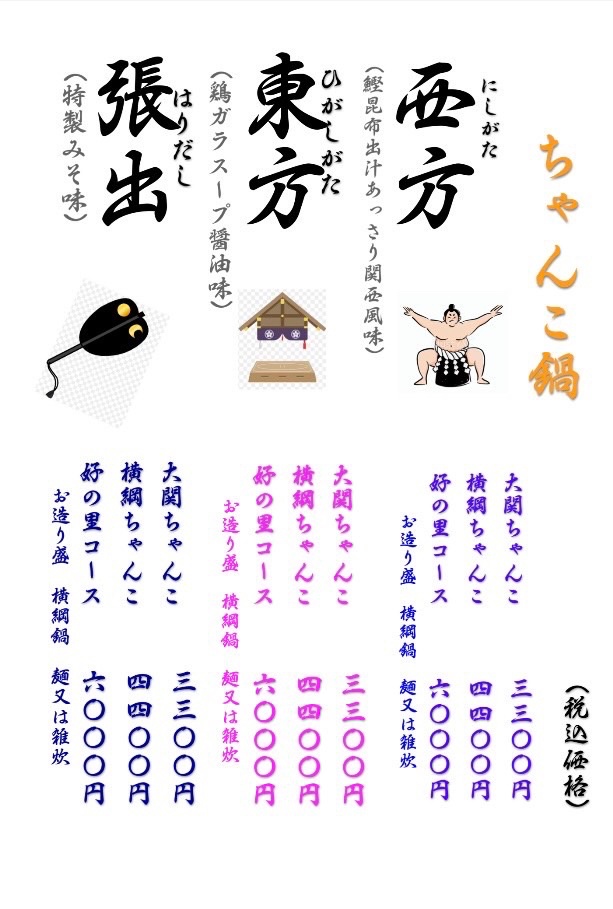 ちゃんこ鍋
(税込価格)
にしがた
西方
(鰹昆布出汁あっさり関西風味)
大関ちゃんこ 三三〇〇円
横綱ちゃんこ 四四〇〇円
好の里コース 六〇〇〇円
お造り盛 横綱鍋 麺又は雑炊
ひがしがた
東方
(鶏ガラスープ醤油味)
大関ちゃんこ 三三〇〇円
横綱ちゃんこ 四四〇〇円
好の里コース 六〇〇〇円
お造り盛 横綱鍋 麺又は雑炊
はりだし
張出
(特製みそ味)
大関ちゃんこ 三三〇〇円
横綱ちゃんこ 四四〇〇円
好の里コース 六〇〇〇円
お造り盛 横綱鍋 麺又は雑炊